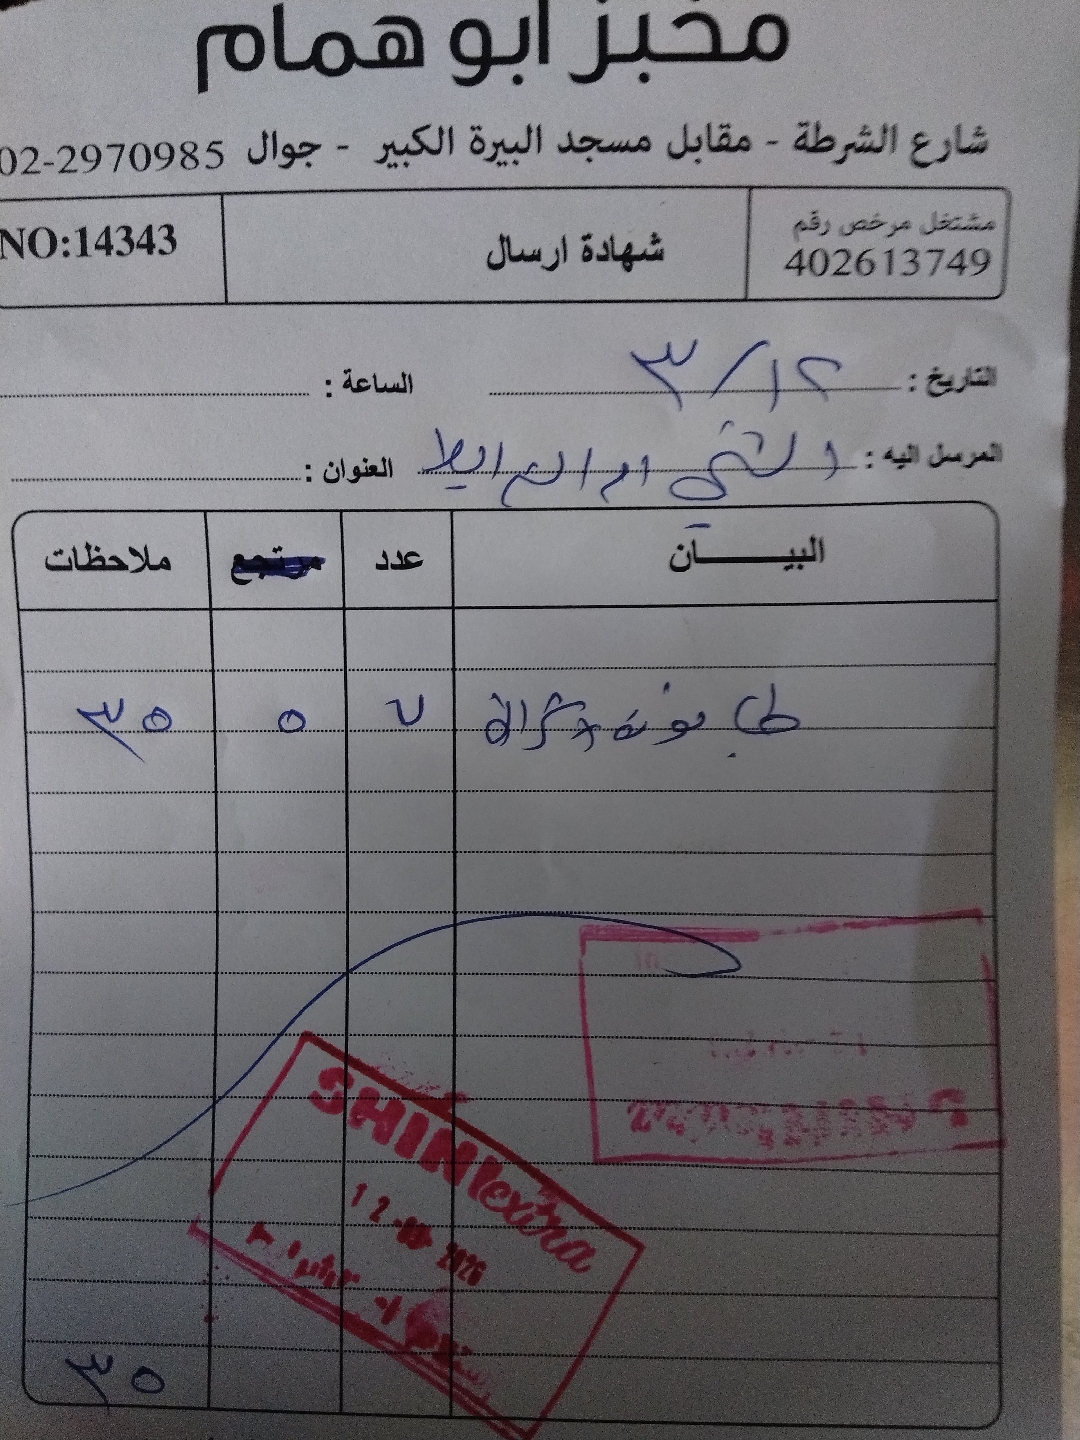 مخبز ابو همام
شارع الشرطة - مقابل مسجد البيرة الكبير - جوال 02-2970985
مشتغل مرخص رقم 402613749
شهادة ارسال
NO:14343
التاريخ : ٣/١٢
الساعة :
المرسل اليه : الشني ام الشرايط
العنوان :
البيـــان عدد مرتجع ملاحظات
طابونة ٧ ٥ ٣٥
SHINI extra
12 2026
٣٥